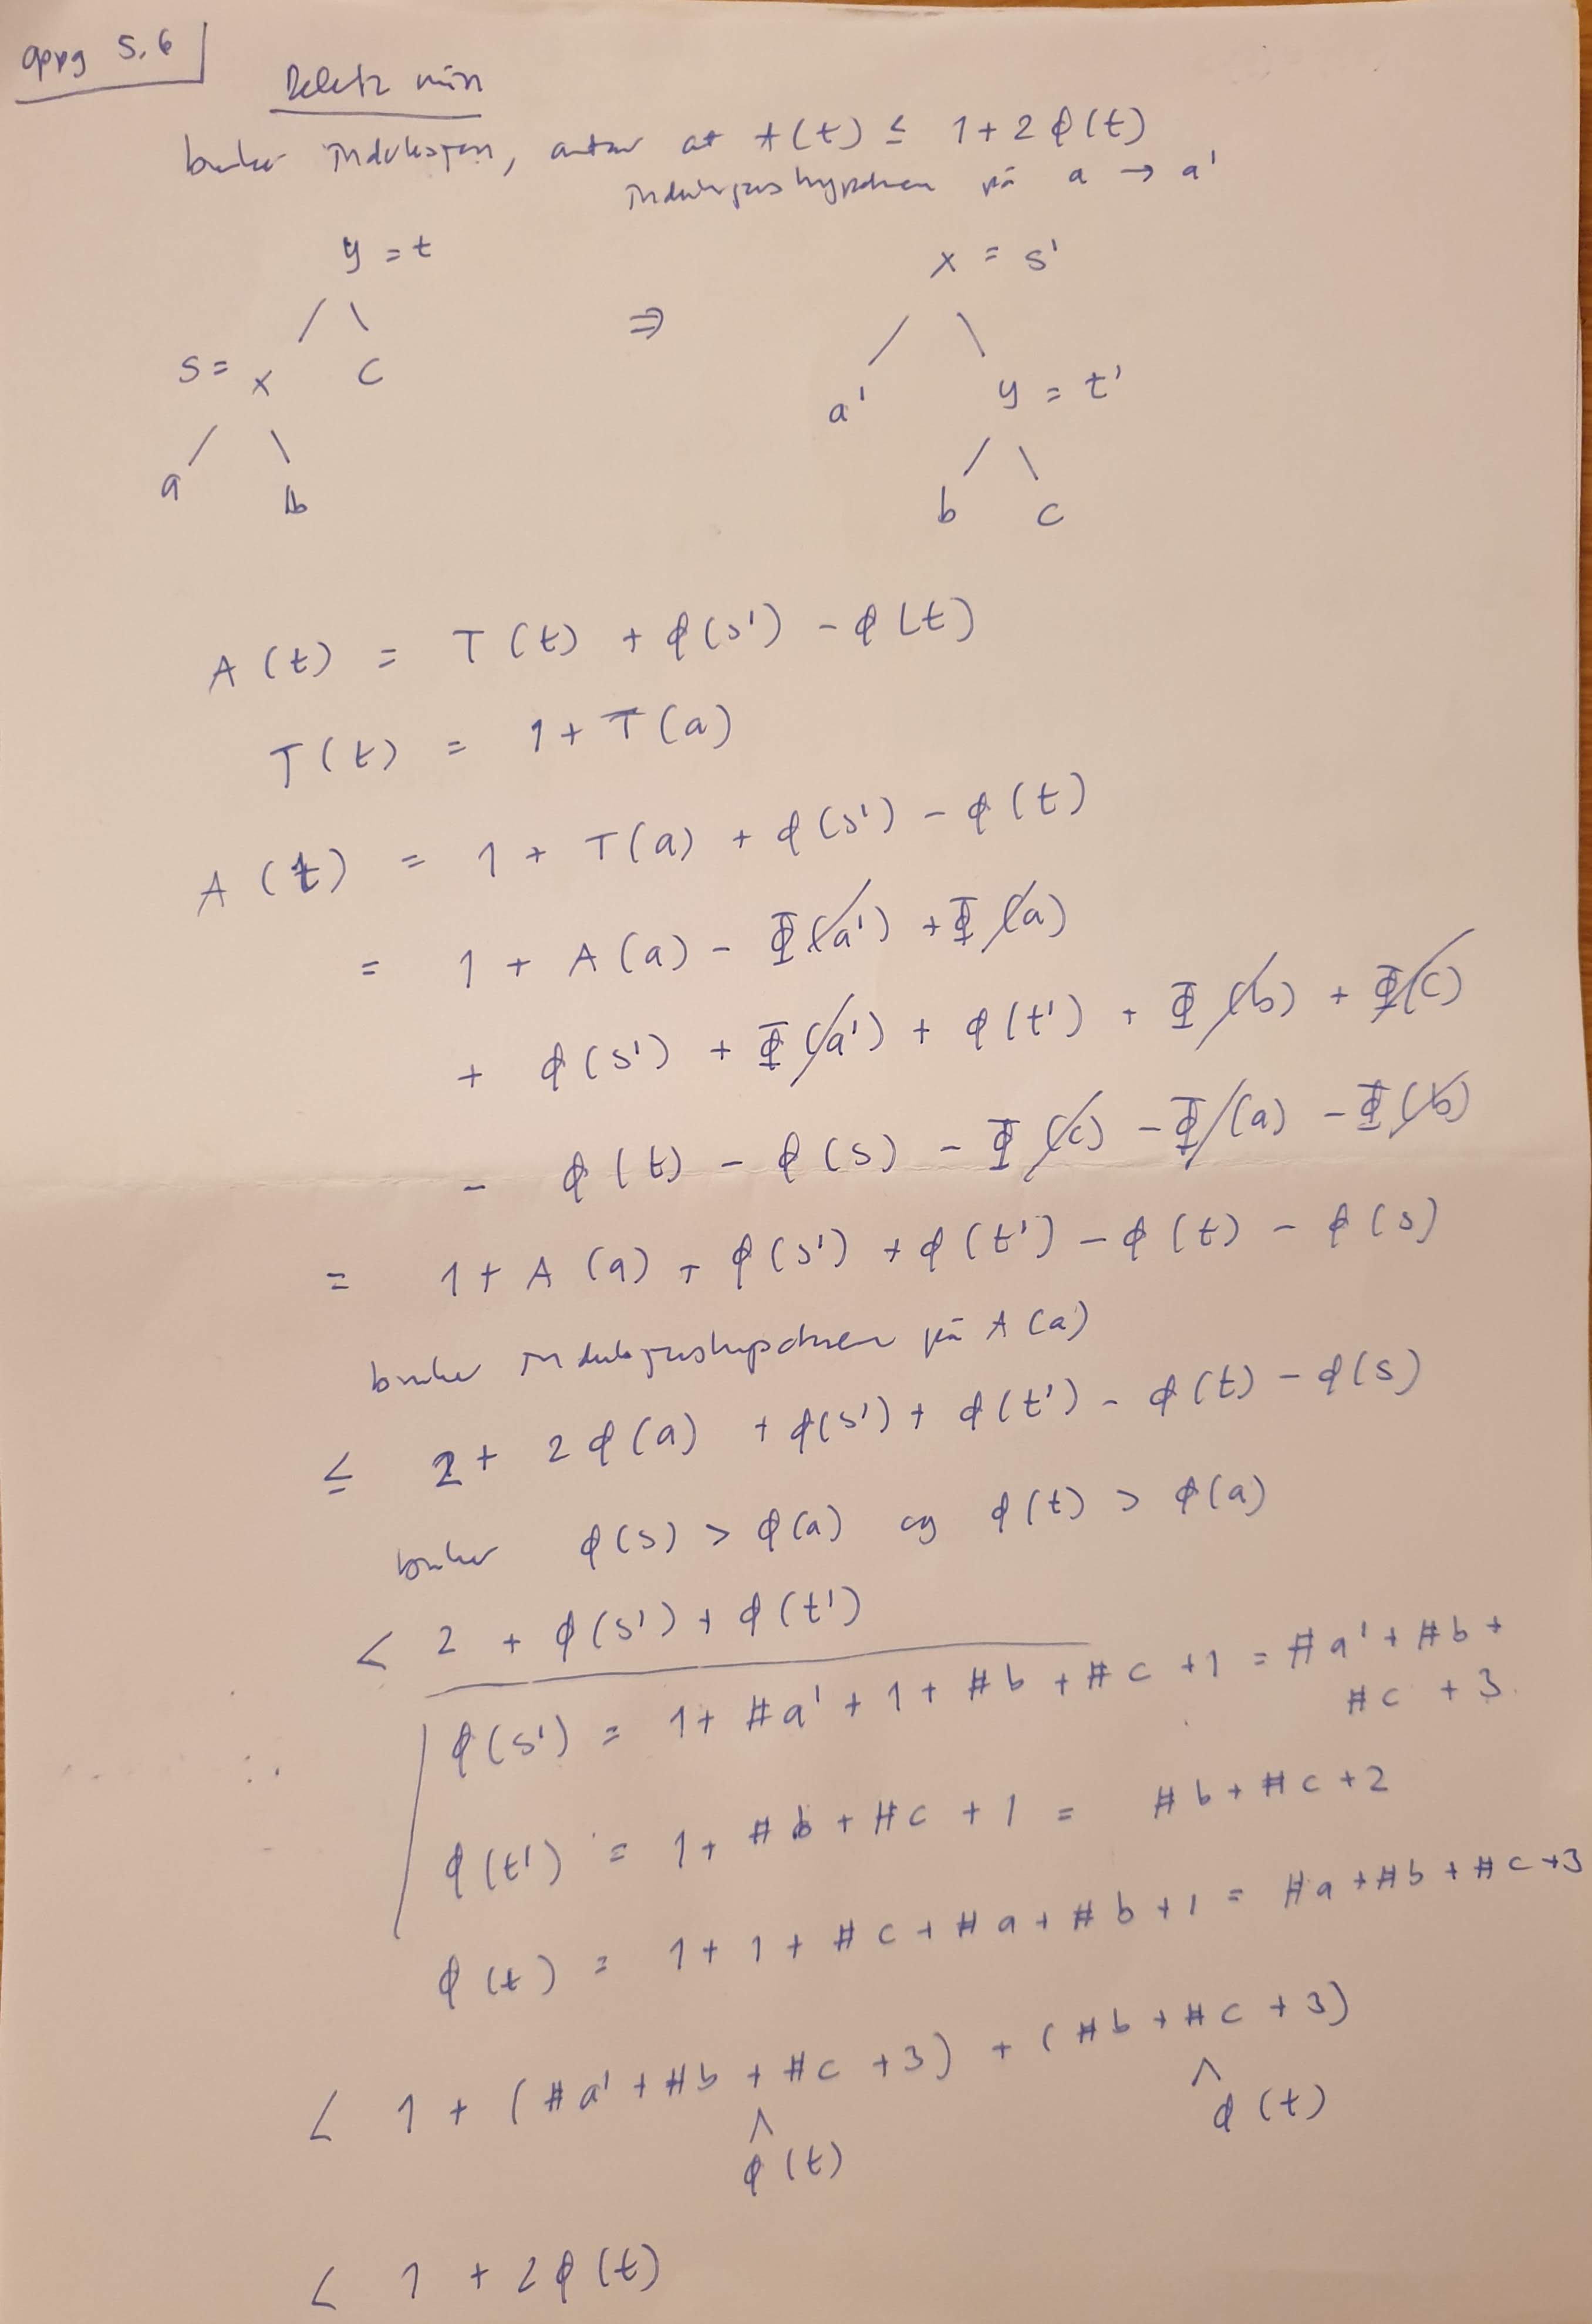 oppg 5.6
Delete min
bruker induksjon, antar at A(t) ≤ 1 + 2ϕ(t)
induksjonshypotesen på a → a'
y = t
x = s'
⇒
s = x
c
a'
y = t'
a
b
b
c
A(t) = T(t) + ϕ(s') - ϕ(t)
T(t) = 1 + T(a)
A(t) = 1 + T(a) + ϕ(s') - ϕ(t)
= 1 + A(a) - Φ(a') + Φ(a)
+ ϕ(s') + Φ(a') + ϕ(t') + Φ(b) + Φ(c)
- ϕ(t) - ϕ(s) - Φ(c) - Φ(a) - Φ(b)
= 1 + A(a) + ϕ(s') + ϕ(t') - ϕ(t) - ϕ(s)
bruker induksjonshypotesen på A(a)
≤ 2 + 2ϕ(a) + ϕ(s') + ϕ(t') - ϕ(t) - ϕ(s)
bruker ϕ(s) > ϕ(a) og ϕ(t) > ϕ(a)
< 2 + ϕ(s') + ϕ(t')
ϕ(s') = 1 + #a' + 1 + #b + #c + 1 = #a' + #b +
#c + 3
ϕ(t') = 1 + #b + #c + 1 = #b + #c + 2
ϕ(t) = 1 + 1 + #c + #a + #b + 1 = #a + #b + #c + 3
< 1 + (#a' + #b + #c + 3) + (#b + #c + 3)
^
ϕ(t)
^
ϕ(t)
< 1 + 2ϕ(t)